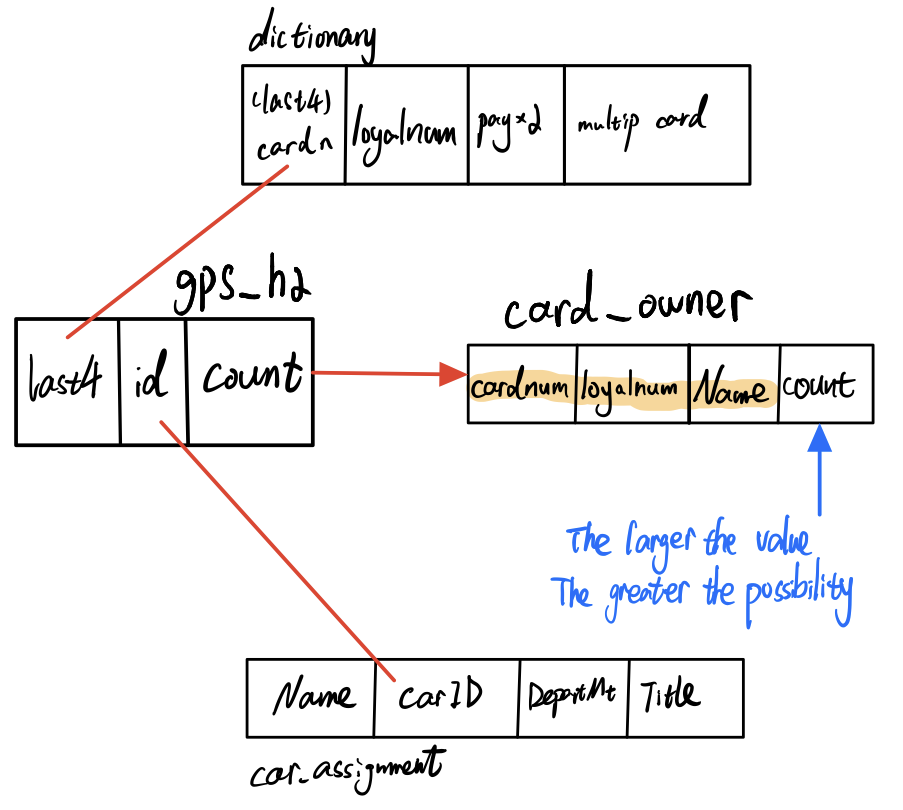 dictionary
(last4) cardn
loyalnum
pay×2
multip card
gps_h2
last4
id
count
card_owner
cardnum
loyalnum
Name
count
The larger the value
The greater the possibility
Name
carID
DepartMt
Title
car_assignment